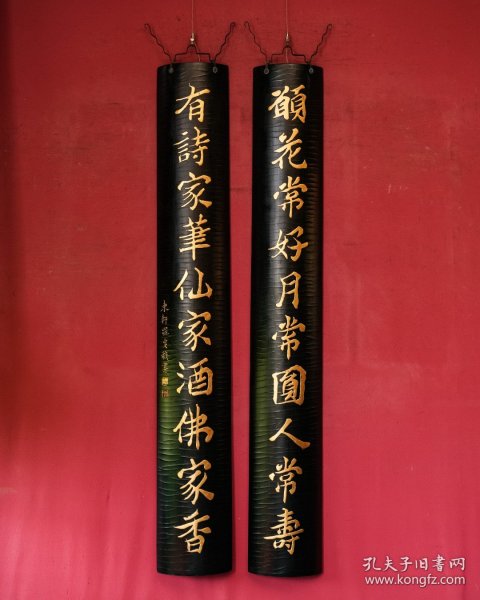 願花常好月常圓人常壽
有詩家華仙家酒佛家香
孔夫子旧书网
www.kongfz.com